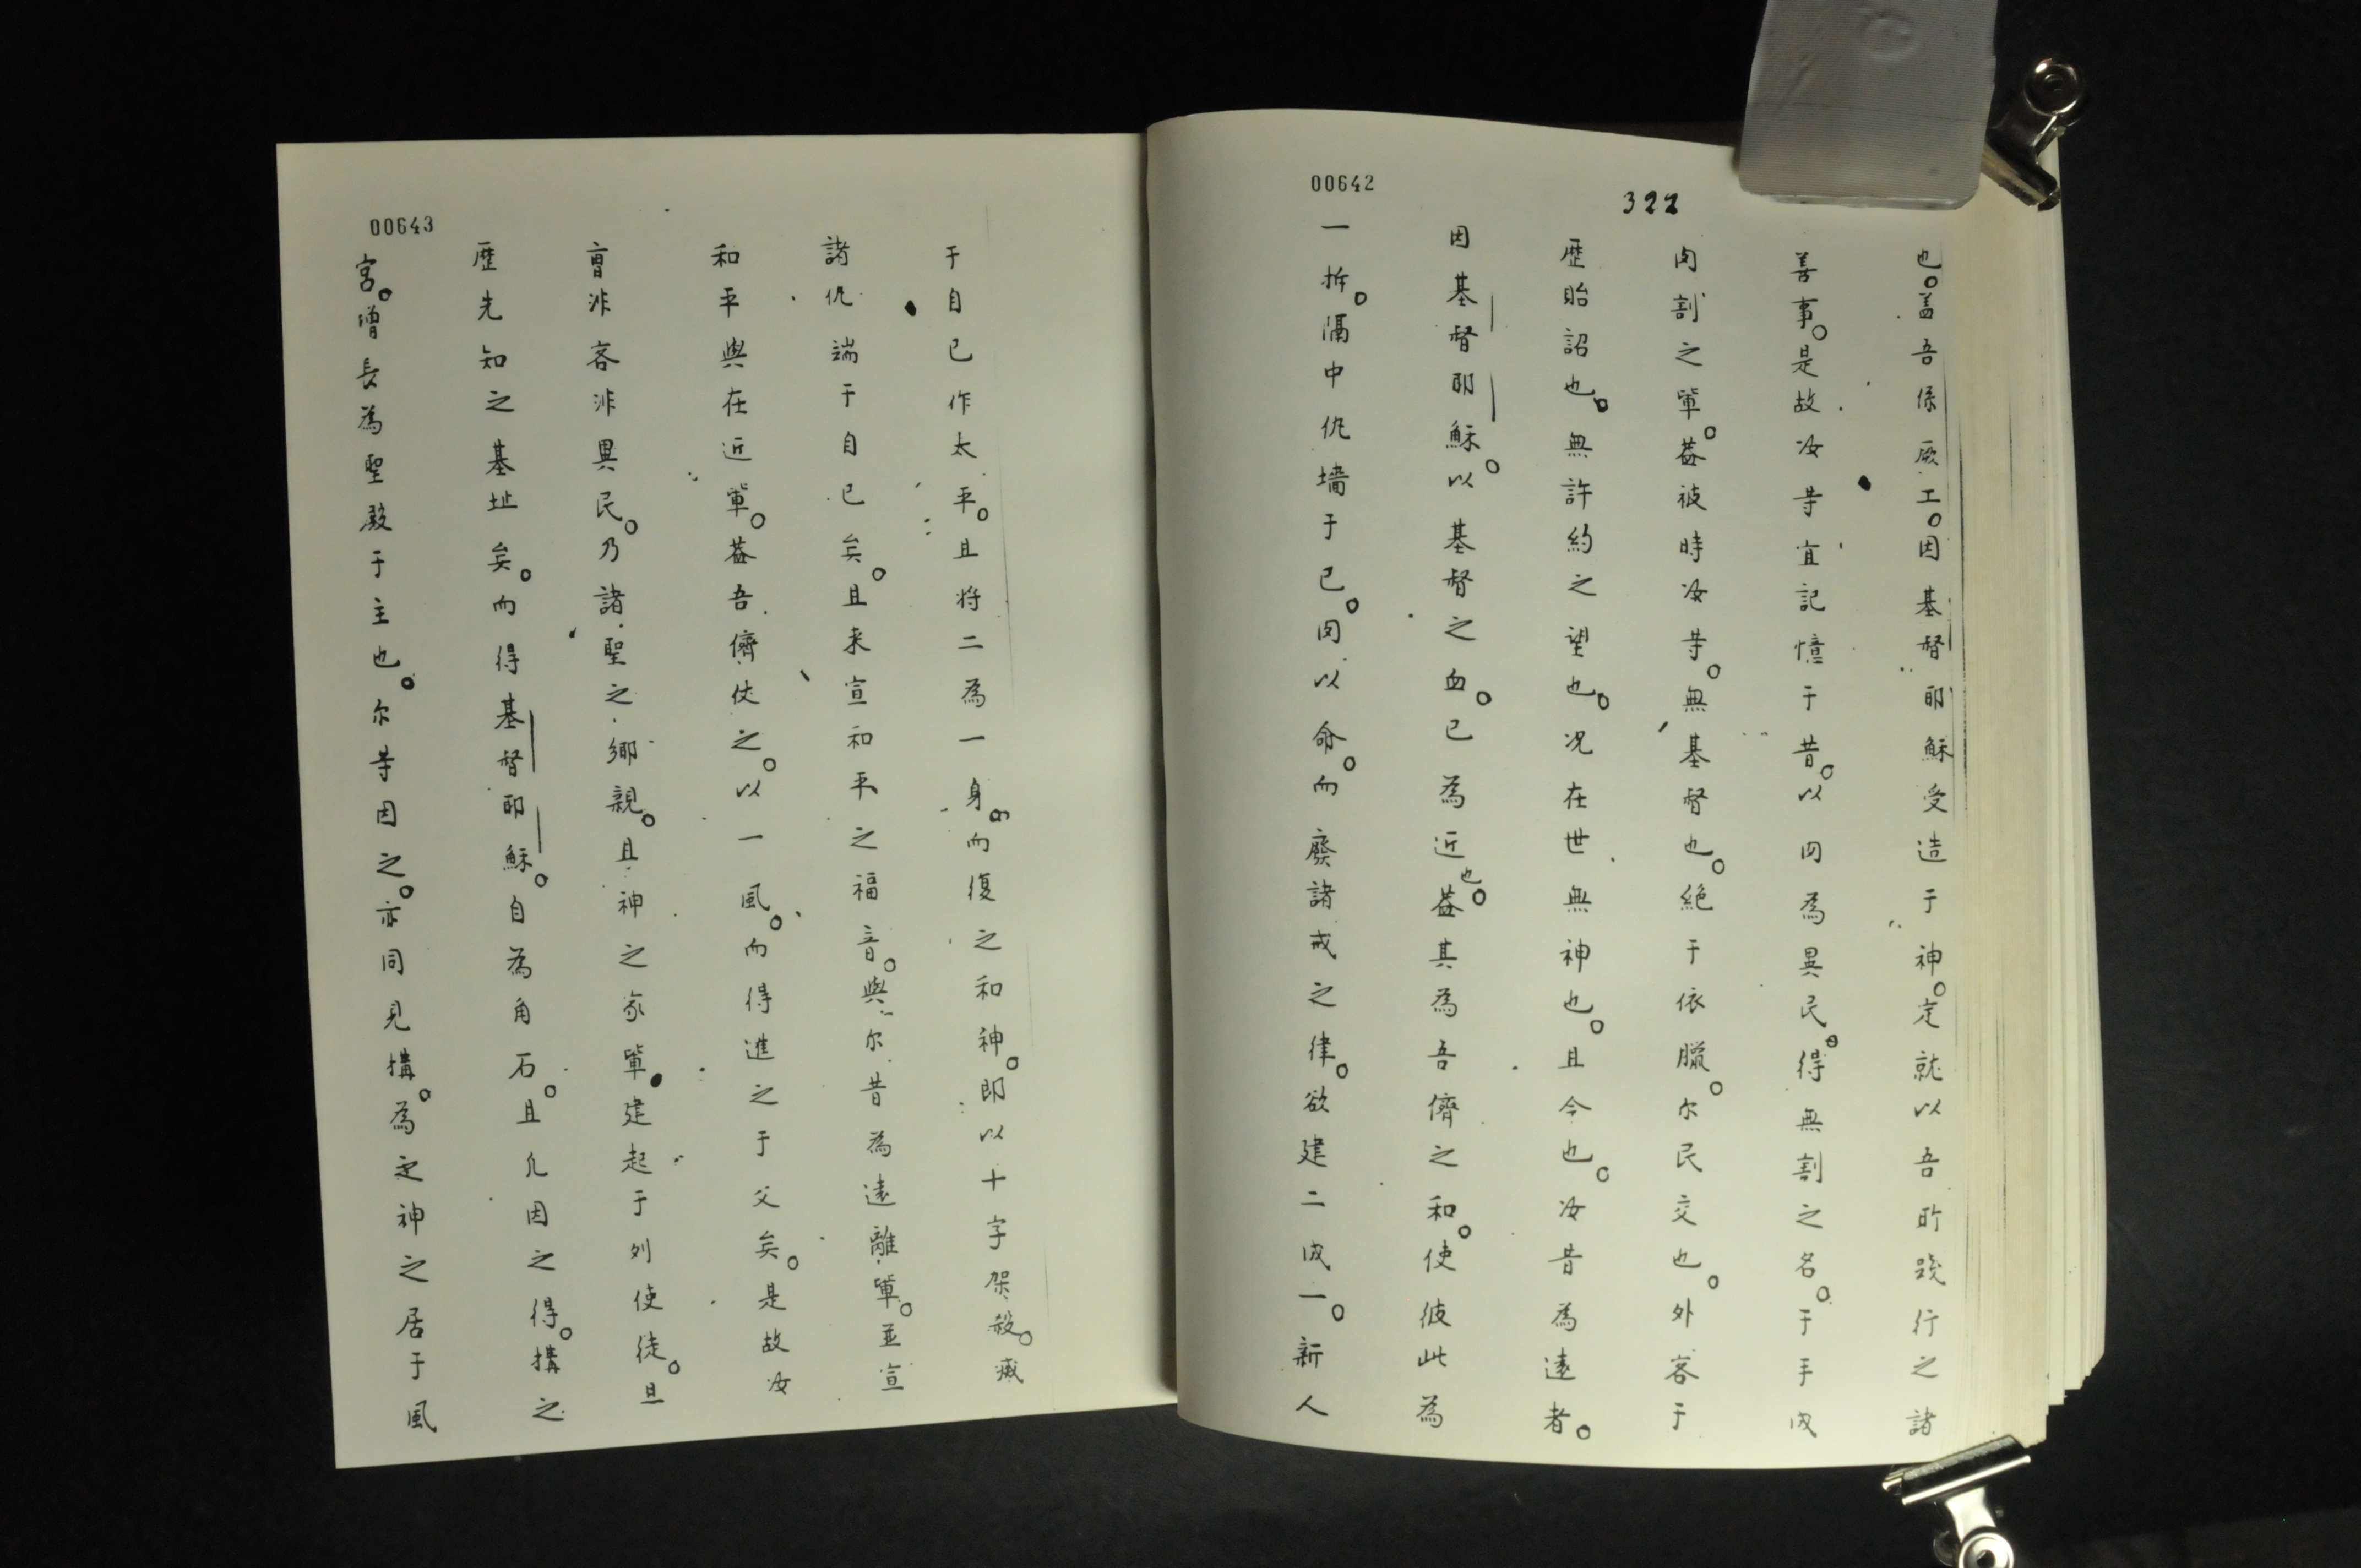 00642
322
也。盖吾係厥工。因基督耶穌受造于神。定就以吾所踐行之諸
善事。是故汝等宜記憶于昔。以肉為異民。得無割之名。于手成
肉割之輩。蓋彼時汝等。無基督也。絕于依臘。尔民交也。外客于
歷貽詔也。無許約之望也。况在世無神也。且今也。汝昔為遠者。
因基督耶穌。以基督之血。已為近也。蓋其為吾儕之和。使彼此為
一拆。隔中仇墻于已。肉以命。而廢諸戒之律。欲建二成一。新人
00643
于自已作太平。且將二為一身。而復之和神。即以十字架殺。滅
諸仇端于自已矣。且来宣和平之福音。與尔昔為遠離輩。並宣
和平與在近輩。蓋吾儕仗之。以一風。而得進之于父矣。是故汝
曺非客非異民。乃諸聖之鄉親。且神之家輩。建起于列使徒。且
歷先知之基址矣。而得基督耶穌。自為角石。且凢因之得。搆之
宮。增長為聖殿于主也。尔等因之。亦同見搆。為之神之居于風